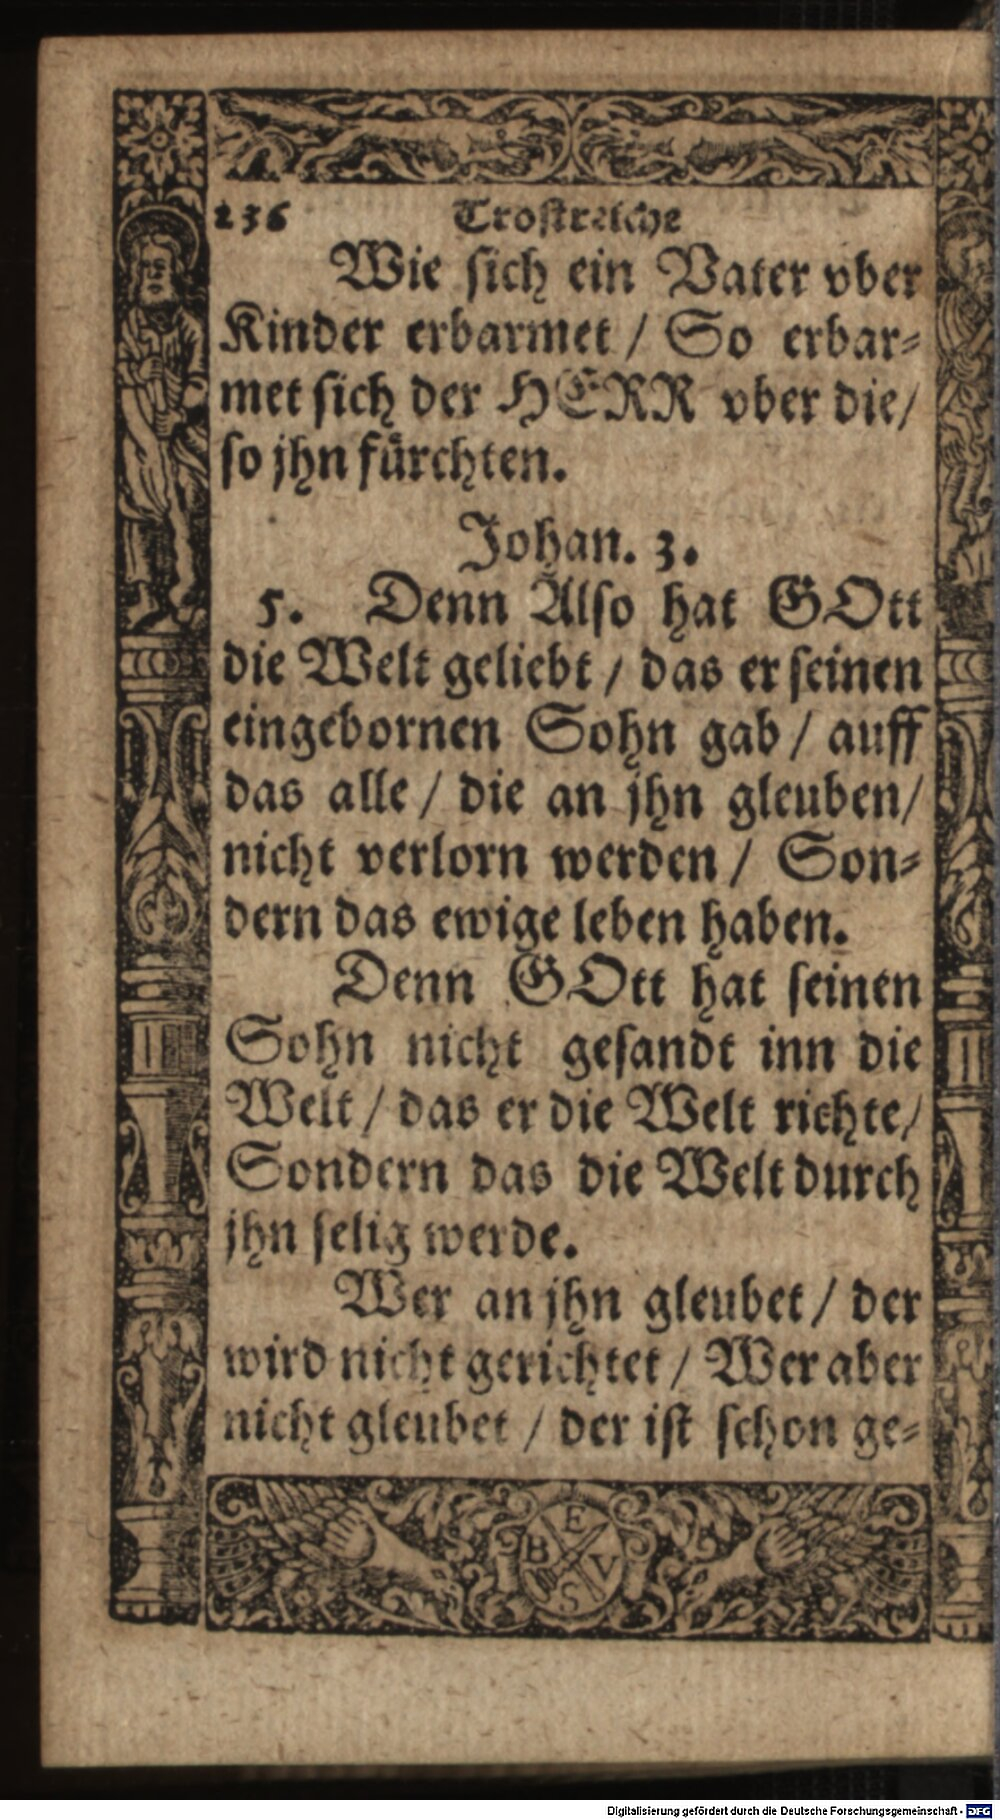 236 Trostreiche
Wie sich ein Vater vber
Kinder erbarmet / So erbar⸗
met sich der HERR vber die /
so jhn fürchten.
Johan. 3.
5. Denn Also hat GOtt
die Welt geliebt / das er seinen
eingebornen Sohn gab / auff
das alle / die an jhn gleuben /
nicht verlorn werden / Son⸗
dern das ewige leben haben.
Denn GOtt hat seinen
Sohn nicht gesandt inn die
Welt / das er die Welt richte /
Sondern das die Welt durch
jhn selig werde.
Wer an jhn gleubet / der
wird nicht gerichtet / Wer aber
nicht gleubet / der ist schon ge⸗
E
B V
S
Digitalisierung gefördert durch die Deutsche Forschungsgemeinschaft - DFG